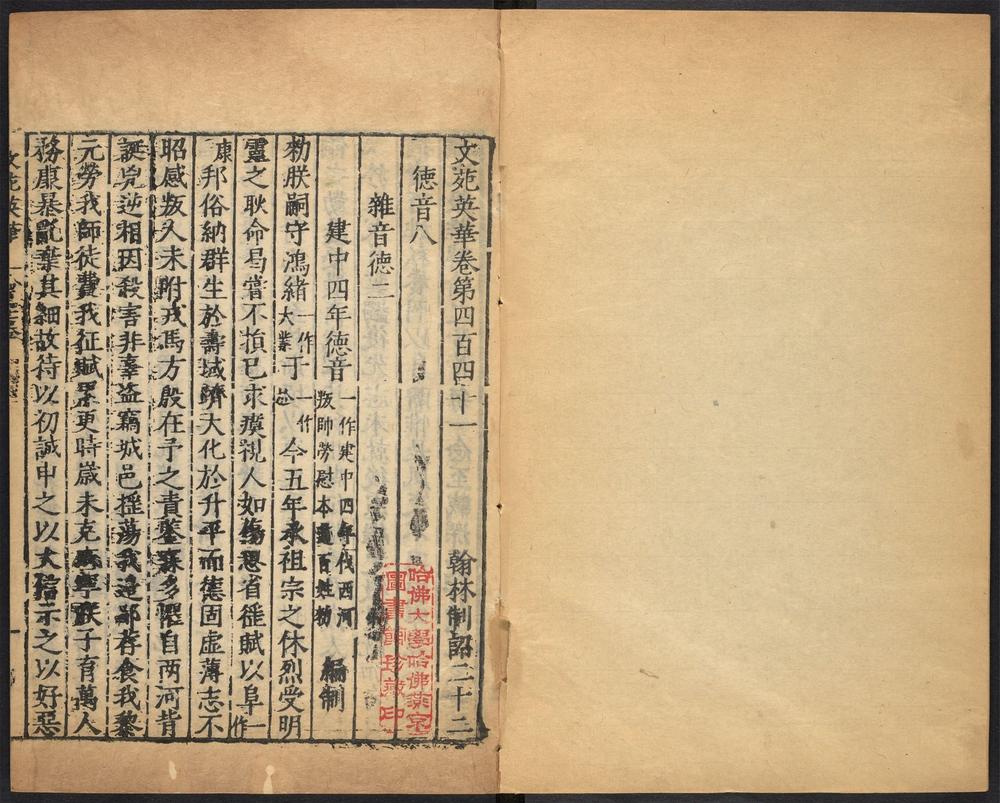 文苑英華卷第四百四十一 翰林制詔二十二
德音八
雜音德二
建中四年德音 一作建中四年伐西河叛帥勞慰本道百姓勅 編制
勅朕嗣守鴻緒一作大業于一作迨今五年承祖宗之休烈受明
靈之耿命曷嘗不損已求瘼視人如傷思省徭賦以阜一作
康邦俗納群生於壽域躋大化於升平而德固虛薄志不
昭感叛人未附戎馬方殷在予之責鑒寐多懼自两河背
誕兇逆相因殺害非辜盗竊城邑揺蕩我邊鄙荐食我黎
元勞我師徒費我征賦累更時歳未克寧朕子育萬人
務康暴亂棄其細故待以初誠申之以大信示之以好惡
文苑英華
哈佛大學哈佛燕京圖書館珍藏印